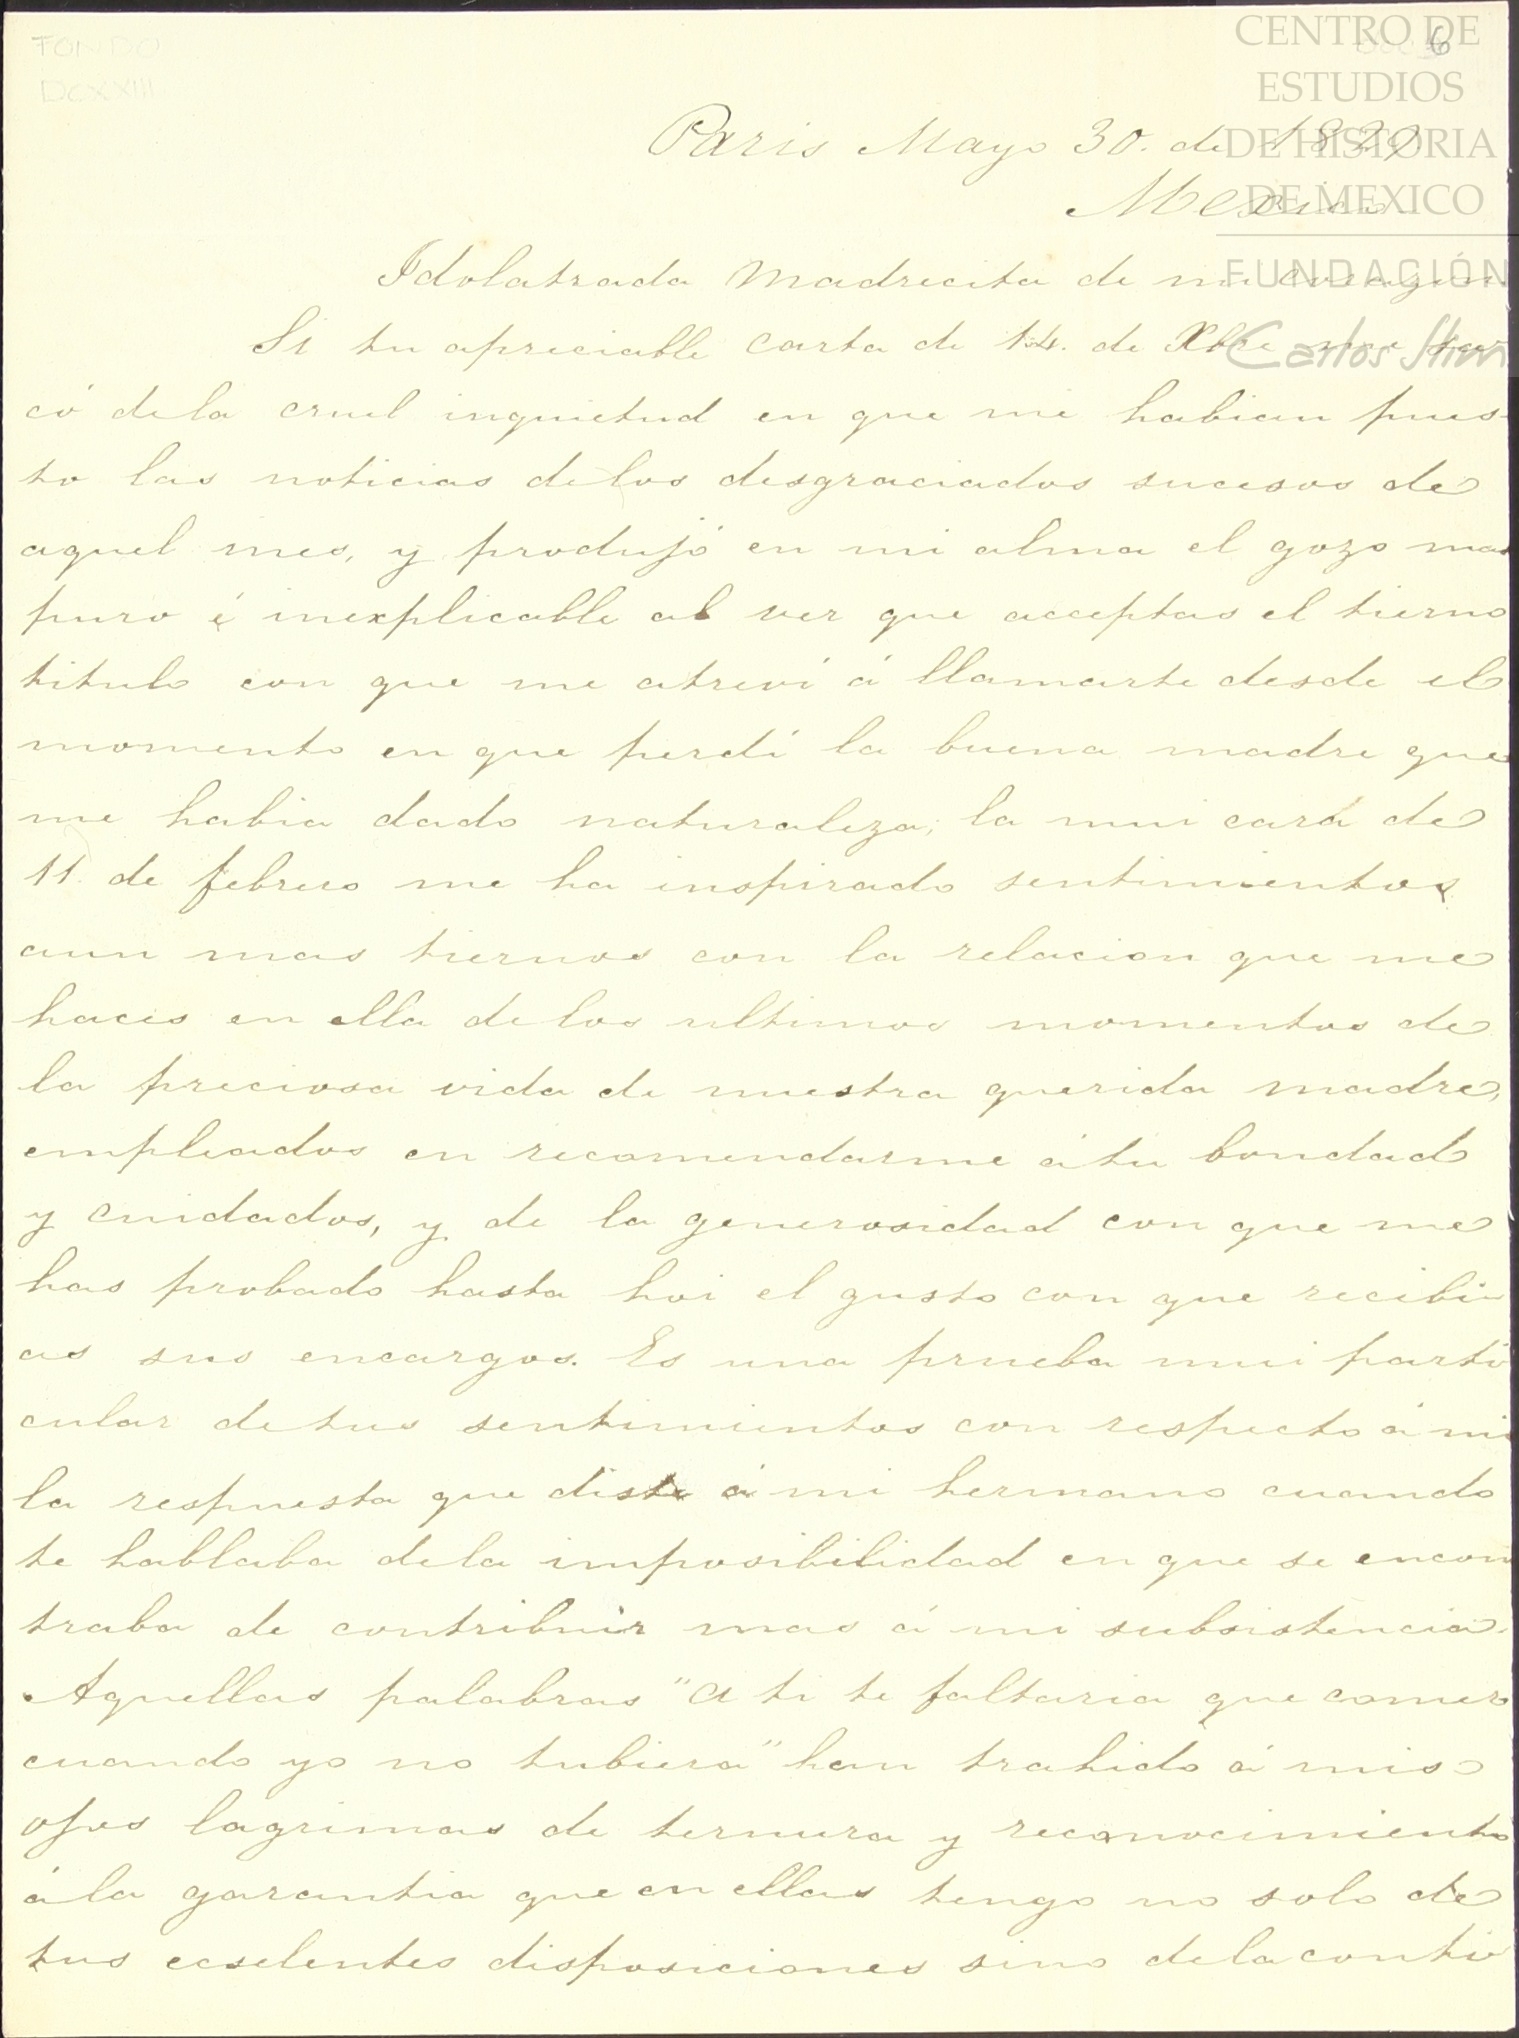 FONDO
DCXXIII
6
CENTRO DE
ESTUDIOS
DE HISTORIA
DE MEXICO
FUNDACIÓN
Carlos Slim
Paris Mayo 30. de 1829
Mexico
Idolatrada Madrecita de mi corazon
Si tu apreciable carta de 14. de Xbre me sa
có dela cruel inquietud en que me habian pues-
to las noticias delos desgraciados sucesos de
aquel mes, y produjó en mi alma el gozo mas
puro é inexplicable al ver que acceptas el tierno
titulo con que me atreví á llamarte desde el
momento en que perdí la buena madre que
me habia dado naturaleza; la mui cara de
11. de febrero me ha inspirado sentimientos
aun mas tiernos con la relacion que me
haces en ella delos ultimos momentos de
la preciosa vida de nuestra querida madre,
empleados en recomendarme átu bondad
y cuidados, y de la generosidad con que me
has probado hasta hoi el gusto con que recibi
as sus encargos. Es una prueba mui parti
cular detus sentimientos con respecto á mi
la respuesta que diste á mi hermano cuando
te hablaba dela imposibilidad en que se encon
traba de contribuir mas á mi subsistencia.
Aquellas palabras "a ti te faltaria que comer
cuando yo no tubiera" han trahido á mis
ojos lagrimas de ternura y reconocimiento
ála garantia que en ellas tengo no solo de
tus ecselentes disposiciones sino dela conti